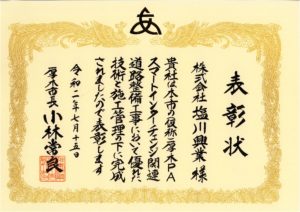 表彰状
株式会社 塩川興業 様
貴社は本市の(仮称)厚木PA
スマートインターチェンジ関連
道路整備工事において優れた
技術と施工管理の下に完成
されましたので表彰します
令和二年七月十五日
厚木市長 小林常良